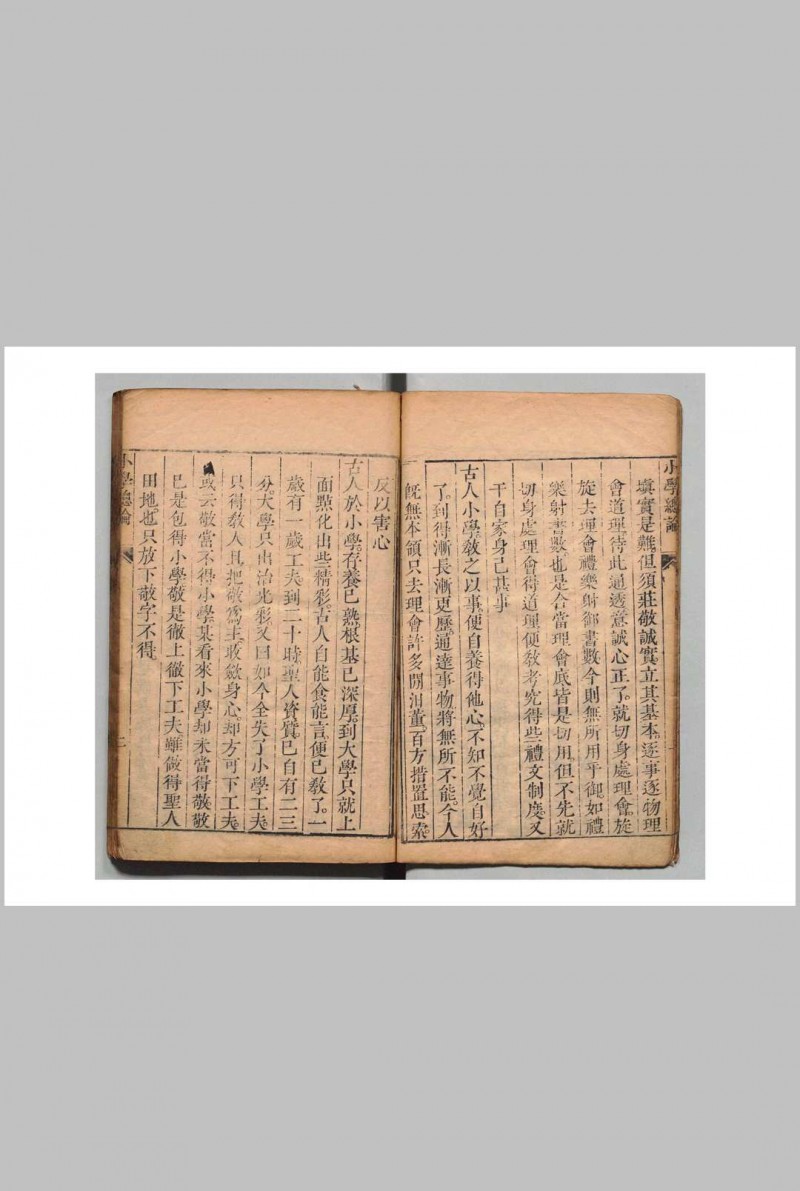 小學總論
塡實是難但須莊敬誠實立其基本逐事逐物理
會道理待此通透意誠心正了就切身處理會旋
旋去理會禮樂射御書數今則無所用乎御如禮
樂射書數也是合當理會底皆是切用但不先就
切身處理會得道理便敎考究得些禮文制度又
干自家身己甚事
古人小學敎之以事便自養得他心不知不覺自好
了到得漸長漸更歷通達事物將無所不能今人
旣無本領只去理會許多閒汨董百方措置思索
反以害心
古人於小學存養已熟根基已深厚到大學只就上
面點化出些精彩古人自能食能言便已敎了一
歲有一歲工夫到二十時聖人資質已自有二三
分大學只出治光彩又曰如今全失了小學工夫
只得敎人且把敬爲主收斂身心却方可下工夫
或云敬當不得小學某看來小學却未當得敬敬
已是包得小學敬是徹上徹下工夫雖做得聖人
田地也只放下敬字不得
小學總論
二